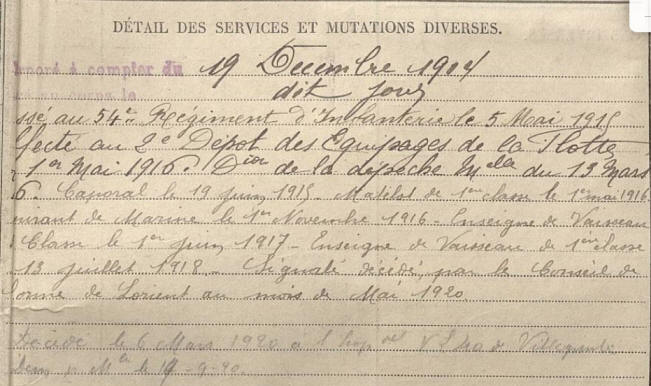 DÉTAIL DES SERVICES ET MUTATIONS DIVERSES.
à compter du 19 Décembre 1914
dit jour
ssé au 54e Régiment d'Infanterie le 5 Mai 1915
ffecté au 2e Dépôt des Équipages de la Flotte
1er Mai 1916. Dion de la dépêche Mlle du 13 Mars
6. Caporal le 19 Juin 1915. Matelot de 1ère classe le 1er mai 1916
pirant de Marine le 1er Novembre 1916 - Enseigne de Vaisseau
Classe le 1er Juin 1917 - Enseigne de Vaisseau de 1ère classe
13 Juillet 1918. Signalé décédé par le Conseil de
forme de Lorient au mois de Mai 1920.
Décédé le 6 Mars 1920 à l'